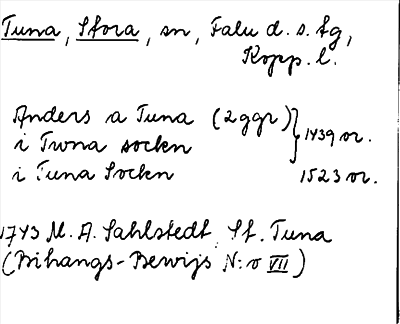 Tuna, Stora, sn, Falu d. s. fg,
Kopp. l.
Anders a Tuna (2 ggr) } 1439 or.
i Twna socken
i Tuna Socken 1523 or.
1743 M. A. Sahlstedt St. Tuna
(Bihangs-Bewijs N:o VII)